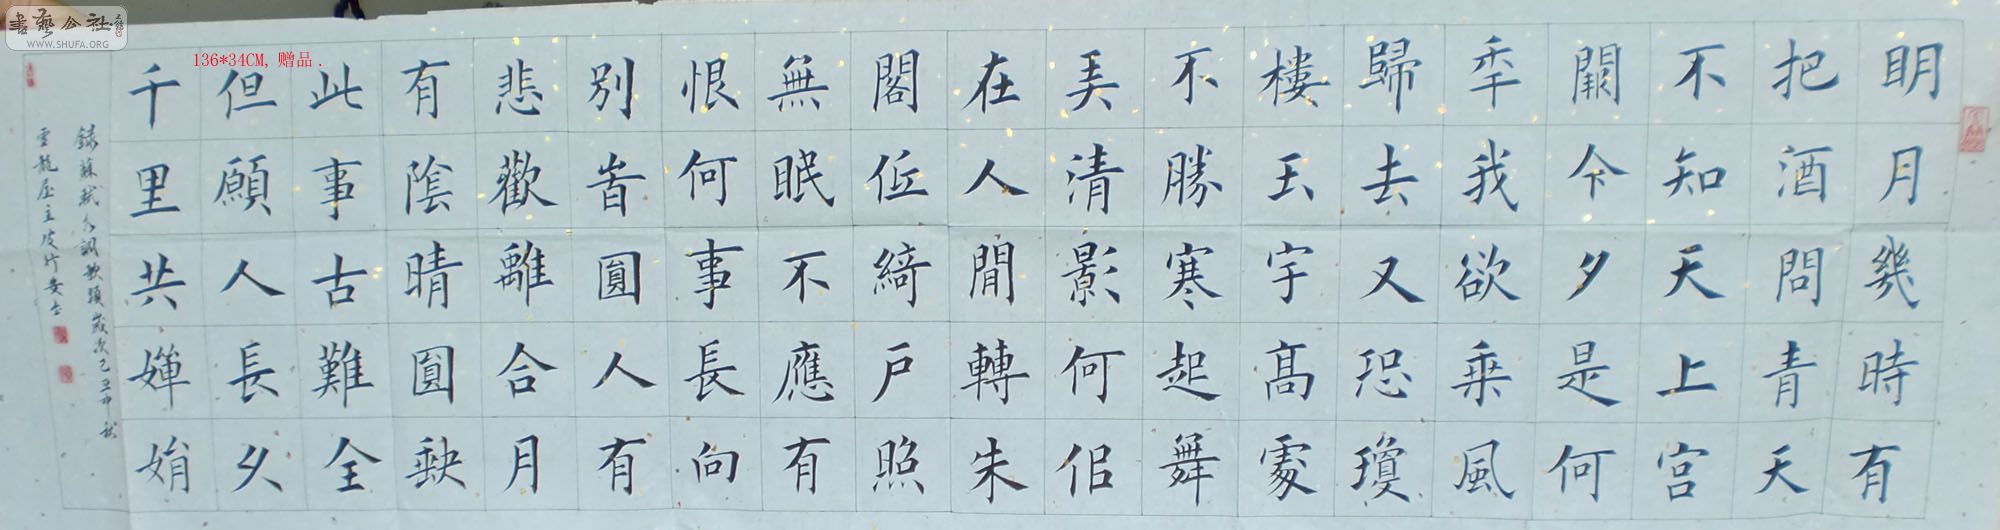 書藝公社
WWW.SHUFA.ORG
136*34CM, 赠品 .
明月幾時有
把酒問青天
不知天上宫
闕今夕是何
秊我欲乗風
歸去又恐瓊
樓玉宇髙處
不勝寒起舞
弄清影何佀
在人間轉朱
閣低綺户照
無眠不應有
恨何事長向
别旹圓人有
悲歡離合月
有陰晴圓缺
此事古難全
但願人長久
千里共嬋娟
録蘇軾水調歌頭歲次己丑中秋
雲龍屋主